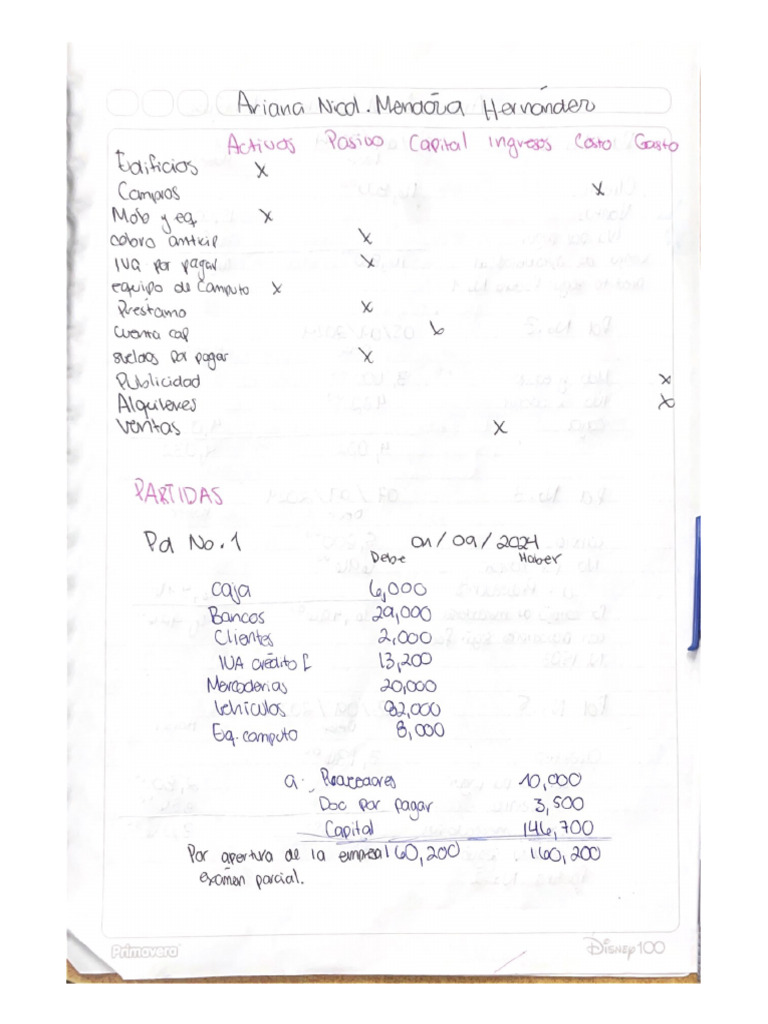 Ariana Nicol. Mendoza Hernández
Activos Pasivo Capital Ingresos Costo Gasto
Edificios x
Compras x
Mob y eq. x
cobro anticip x
IVA por pagar x
equipo de computo x
Préstamo x
Cuenta cap
sueldos por pagar x
Publicidad x
Alquileres x
ventas x
PARTIDAS
Pd No. 1 01/09/2024
Debe Haber
Caja 6,000
Bancos 29,000
Clientes 2,000
IVA crédito f 13,200
Mercaderias 20,000
Vehículos 82,000
Eq. computo 8,000
a: 10,000
Doc por pagar 3,500
Capital 146,700
Por apertura de la empresa 160,200 160,200
exámen parcial.
Primavera Disney100